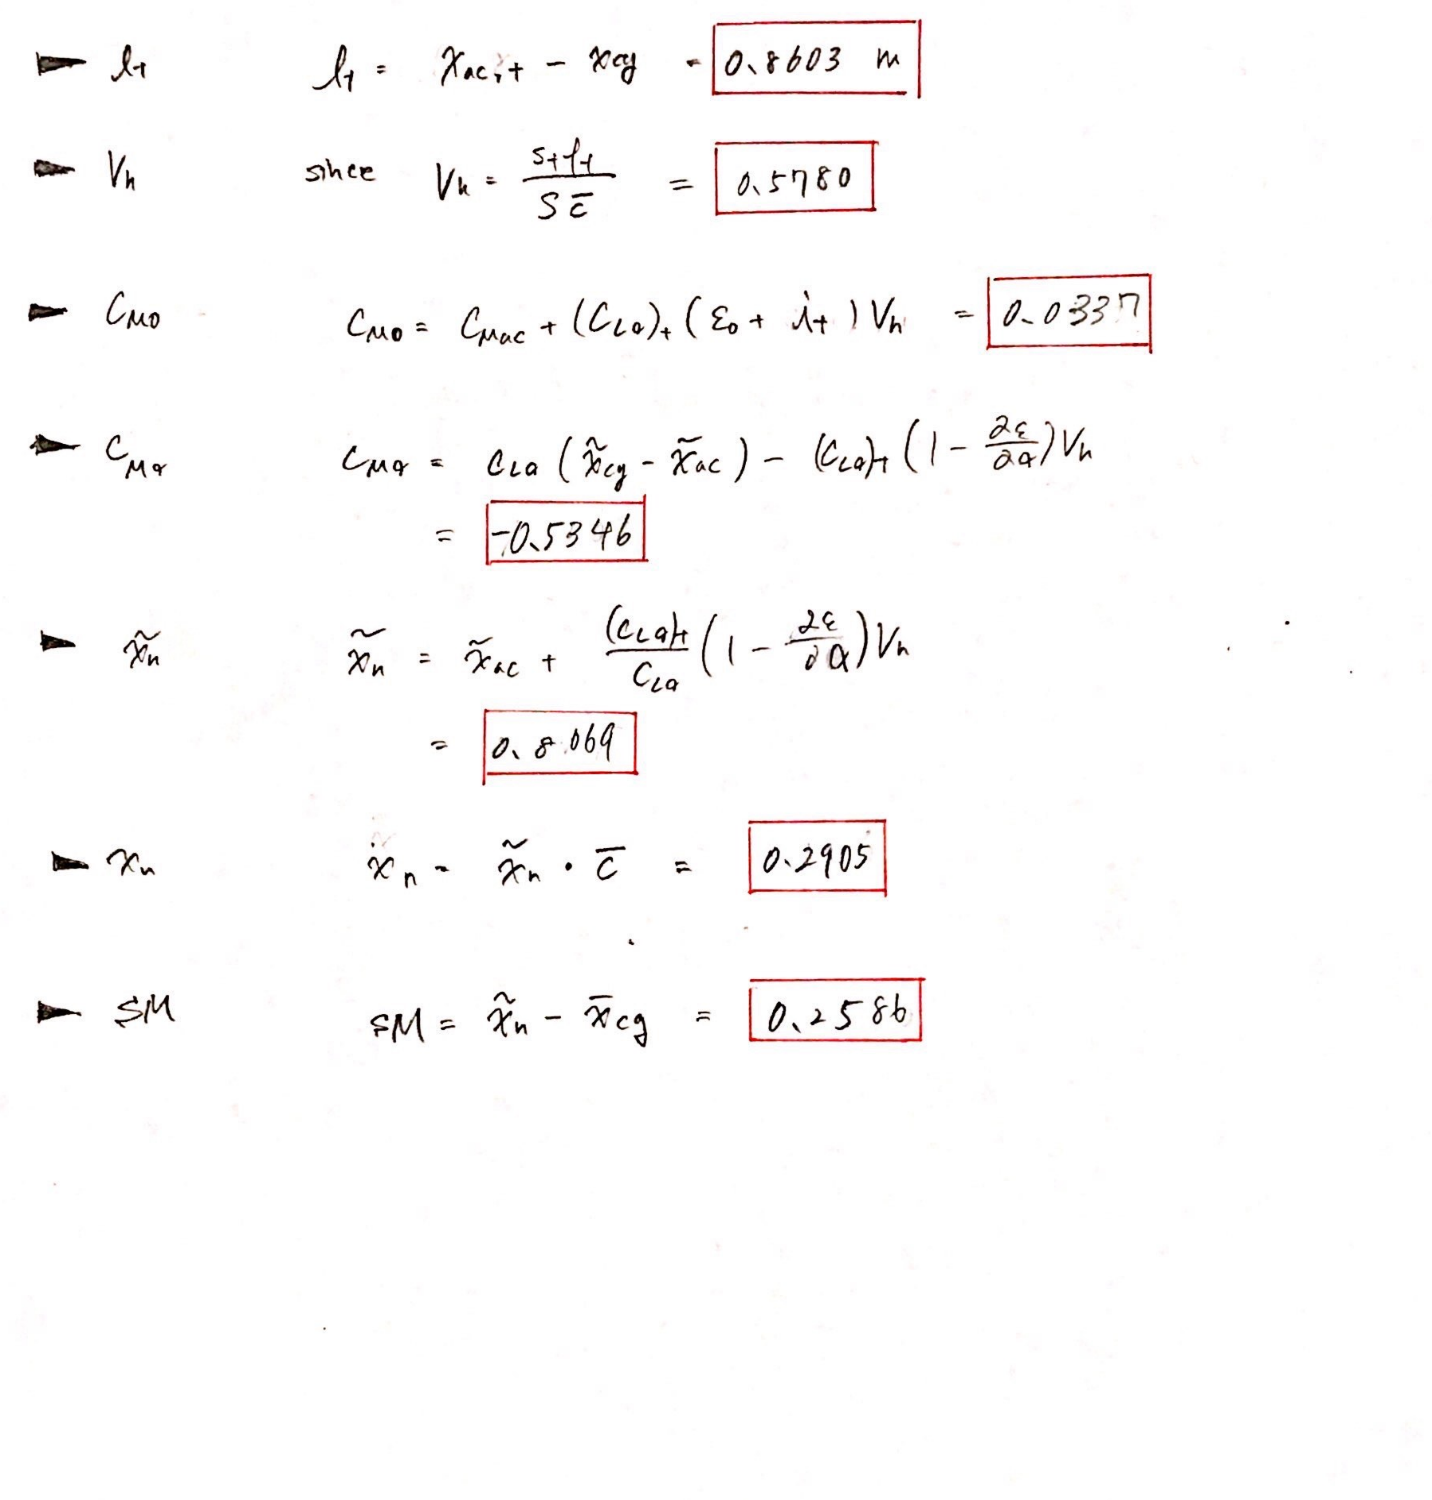 lt lt = xac,t - xcg = 0.8603 m
Vh since Vh = St lt / S c̄ = 0.5780
CM0 CM0 = CMac + (CLα)t (ε0 + it) Vh = 0.0337
CMα CMα = CLα (x̃cg - x̃ac) - (CLα)t (1 - ∂ε/∂α) Vh
= -0.5346
x̃n x̃n = x̃ac + (CLα)t / CLα (1 - ∂ε/∂α) Vh
= 0.8069
xn xn = x̃n · c̄ = 0.2905
SM SM = x̃n - x̄cg = 0.2586